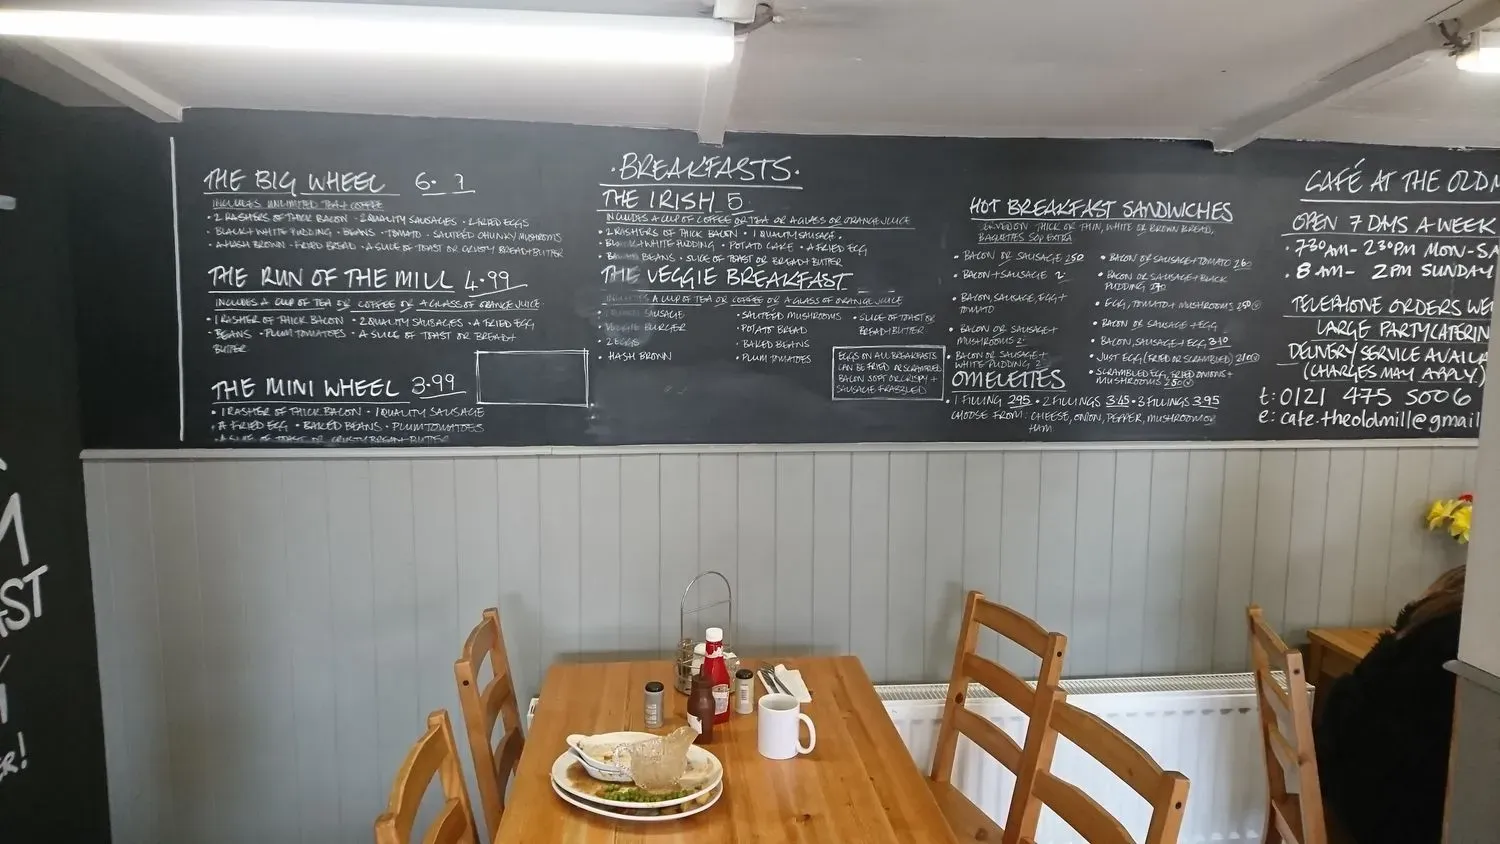 THE BIG WHEEL 6. 7
INCLUDES UNLIMITED TEA + COFFEE
• 2 RASHERS OF THICK BACON • 2 QUALITY SAUSAGES • 2 FRIED EGGS
• BLACK + WHITE PUDDING • BEANS • TOMATO • SAUTEED CHUNKY MUSHROOMS
• A HASH BROWN • FRIED BREAD • A SLICE OF TOAST OR CRUSTY BREAD + BUTTER
THE RUN OF THE MILL 4.99
INCLUDES A CUP OF TEA OR COFFEE OR A GLASS OF ORANGE JUICE
• 1 RASHER OF THICK BACON • 2 QUALITY SAUSAGES • A FRIED EGG
BEANS • PLUM TOMATOES • A SLICE OF TOAST OR BREAD +
BUTTER
THE MINI WHEEL 3.99
• 1 RASHER OF THICK BACON • 1 QUALITY SAUSAGE
• A FRIED EGG • BAKED BEANS • PLUM TOMATOES
• A SLICE OF TOAST OR CRUSTY BREAD + BUTTER
• BREAKFASTS •
THE IRISH 5
INCLUDES A CUP OF COFFEE OR TEA OR A GLASS OR ORANGE JUICE
• 2 RASHERS OF THICK BACON • 1 QUALITY SAUSAGE
• BLACK + WHITE PUDDING • POTATO CAKE • A FRIED EGG
• BEANS • SLICE OF TOAST OR BREAD + BUTTER
THE VEGGIE BREAKFAST
INCLUDES A CUP OF TEA OR COFFEE OR A GLASS OF ORANGE JUICE
SAUSAGE
• VEGGIE BURGER
• 2 EGGS
• HASH BROWN
• SAUTEED MUSHROOMS
• POTATO BREAD
• BAKED BEANS
• PLUM TOMATOES
• SLICE OF TOAST OR
BREAD + BUTTER
EGGS ON ALL BREAKFASTS
CAN BE FRIED OR SCRAMBLED
BACON SOFT OR CRISPY +
SAUSAGE FRAZZLED
HOT BREAKFAST SANDWICHES
SERVED ON THICK OR THIN, WHITE OR BROWN BREAD,
BAGUETTES 50P EXTRA
• BACON OR SAUSAGE 250
• BACON + SAUSAGE 2
• BACON, SAUSAGE, EGG +
TOMATO
• BACON OR SAUSAGE +
MUSHROOMS 2
• BACON OR SAUSAGE +
WHITE PUDDING 2
• BACON OR SAUSAGE + TOMATO 260
• BACON OR SAUSAGE + BLACK
PUDDING 270
• EGG, TOMATO + MUSHROOMS 250 V
• BACON OR SAUSAGE + EGG
• BACON, SAUSAGE, EGG 310
• JUST EGG (FRIED OR SCRAMBLED) 210 V
• SCRAMBLED EGG, FRIED ONIONS +
MUSHROOMS 250 V
OMELETTES
• 1 FILLING 295 • 2 FILLINGS 345 • 3 FILLINGS 395
CHOOSE FROM: CHEESE, ONION, PEPPER, MUSHROOM OR
HAM
CAFÉ AT THE OLD M
OPEN 7 DAYS A WEEK
• 730AM - 230PM MON - SA
• 8AM - 2PM SUNDAY
TELEPHONE ORDERS WE
LARGE PARTY CATERIN
DELIVERY SERVICE AVAILA
(CHARGES MAY APPLY)
t: 0121 475 5006
e: cafe.theoldmill@gmail